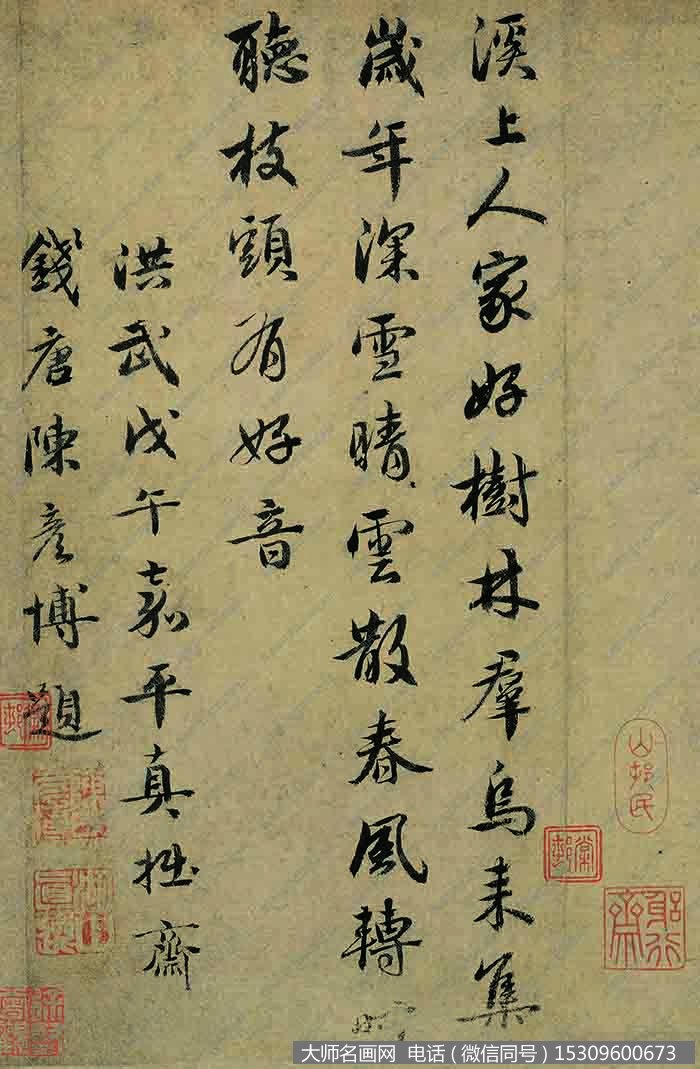 溪上人家好樹林羣烏来集
歲年深雪晴雲散春風轉
聽枝頭有好音
洪武戊午嘉平真拙齋
錢唐陳彦博題
山邨民
大师名画网 电话（微信同号）15309600673